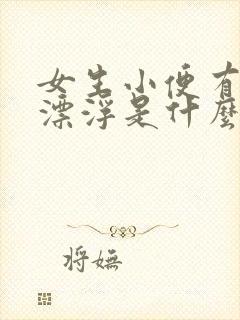 女生小便有
漂浮是什麼
将嫵